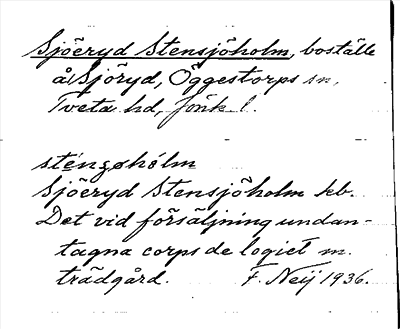 Sjöeryd Stensjöholm, boställe
å Sjöryd, Öggestorps sn,
Tveta hd, Jönk l.
sténʂøhólm
Sjöeryd Stensjöholm kb.
Det vid försäljning undan-
tagna corps de logiet m.
trädgård. F. Neij 1936.